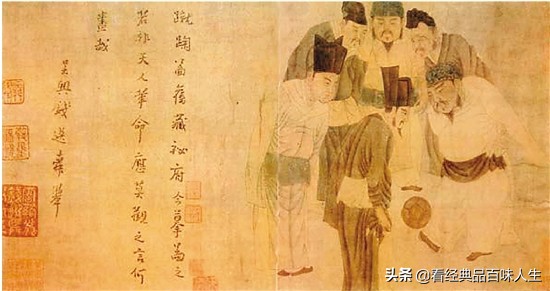 蹴鞠啚舊藏祕府今摹啚之
若非天人革命應莫觀之言何
畫哉
吳興錢選舜舉
头条 @看经典品百味人生